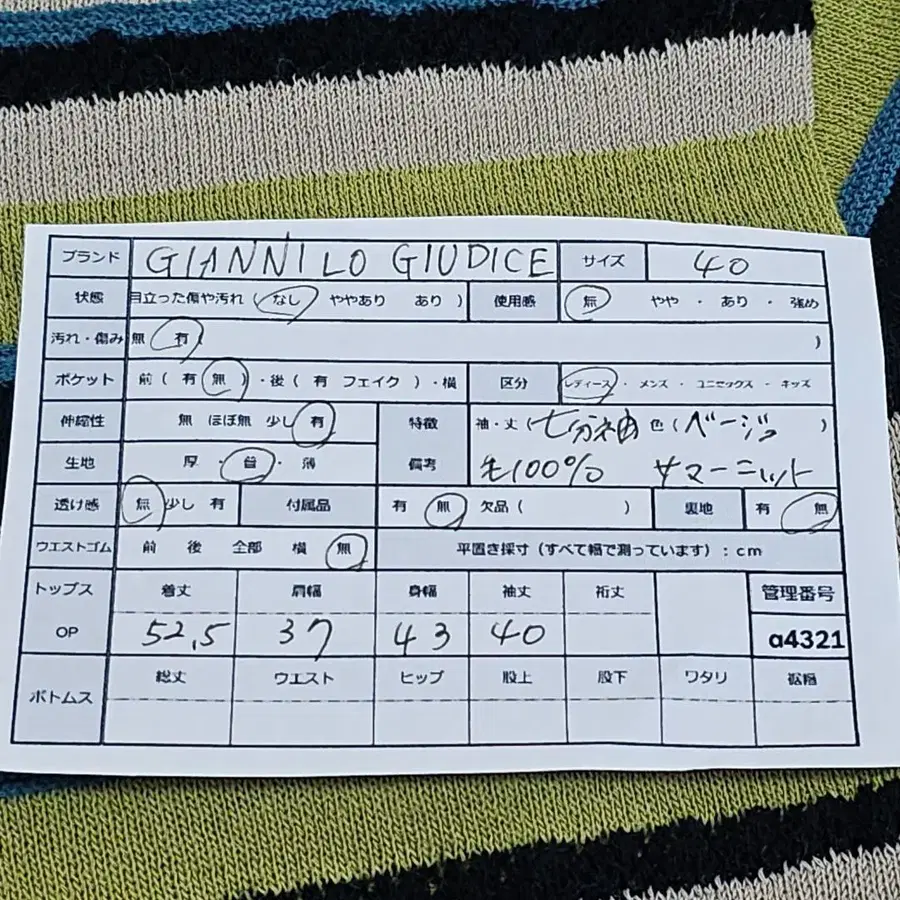 ブランド GIANNI LO GIUDICE サイズ 40
状態 目立った傷や汚れ ( なし ややあり あり ) 使用感 無 やや ・ あり ・ 強め
汚れ・傷み 無 有 ( )
ポケット 前 ( 有 無 ) ・後 ( 有 フェイク ) ・横 区分 レディース ・ メンズ ・ ユニセックス ・ キッズ
伸縮性 無 ほぼ無 少し 有 特徴 袖・丈 ( 七分袖 色 ( ベージュ )
生地 厚 ・ 普 ・ 薄 備考 毛100% サマーニット
透け感 無 少し 有 付属品 有 無 欠品 ( ) 裏地 有 無
ウエストゴム 前 後 全部 横 無 平置き採寸 (すべて幅で測っています) : cm
トップス 着丈 肩幅 身幅 袖丈 裄丈 管理番号
OP 52.5 37 43 40 a4321
ボトムス 総丈 ウエスト ヒップ 股上 股下 ワタリ 裾幅